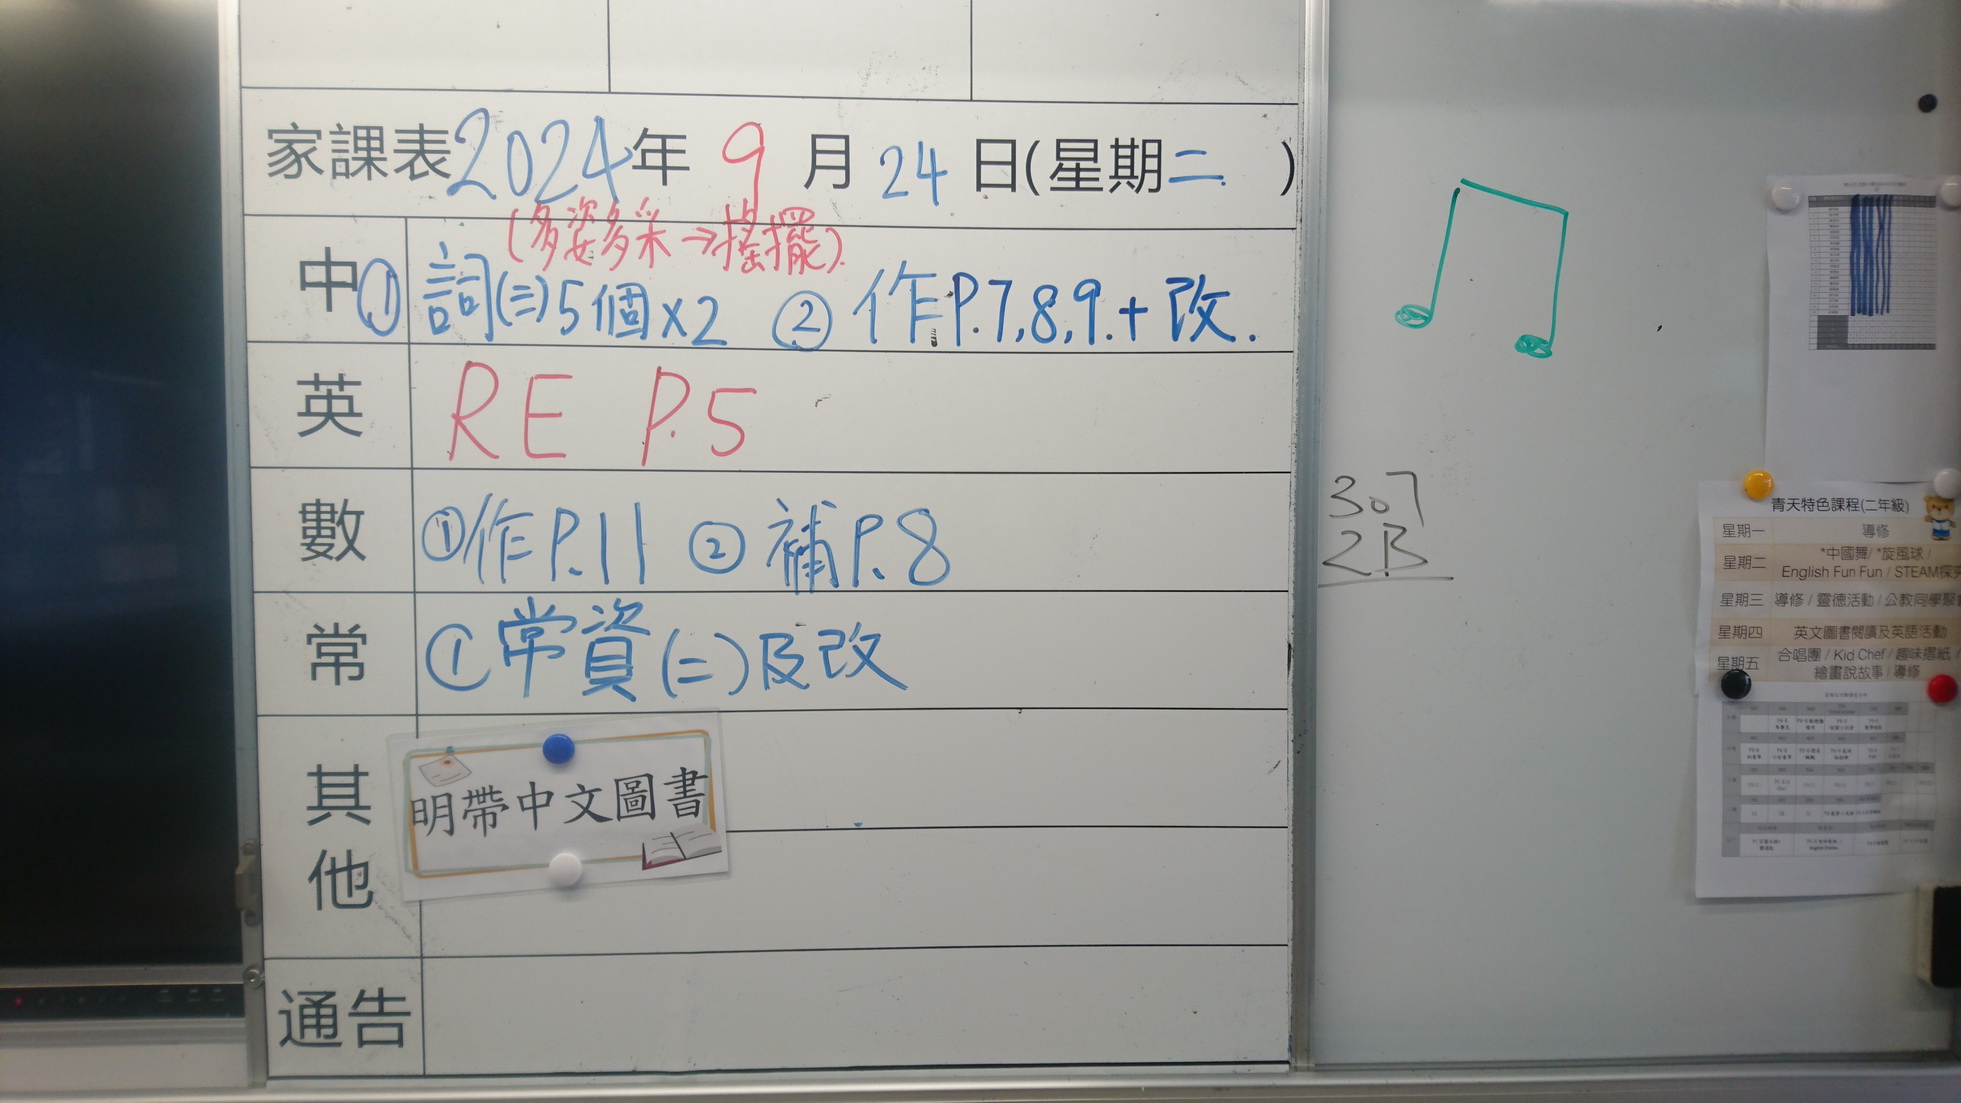 家課表2024年9月24日(星期二)
(多姿多采→搖擺)
中 ① 詞(二)5個x2 ② 作P.7,8,9.+改.
英 RE P.5
數 ①作P.11 ② 補P.8
常 ①常資(二)及改
其他 明帶中文圖書
通告
307
2B
青天特色課程(二年級)
星期一 導修
星期二 *中國舞/ *旋風球/
English Fun Fun / STEAM探
星期三 導修 / 靈德活動 / 公教同學聚
星期四 英文圖書閱讀及英語活動
星期五 合唱團 / Kid Chef / 趣味摺紙 /
繪畫說故事 / 導修